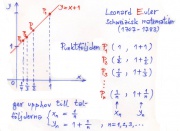 y
y = x+1
P₁
P₂
P₃
1
x
Leonard Euler
Schweizisk matematiker
(1707 - 1783)
Punktföljden
P₁ (1, 1+1)
P₂ (1/2, 1+1/2)
P₃ (1/3, 1+1/3)
Pₙ (1/n, 1+1/n)
xₙ yₙ
ger upphov till tal-
följderna
xₙ = 1/n
yₙ = 1 + 1/n , n = 1,2,3,...